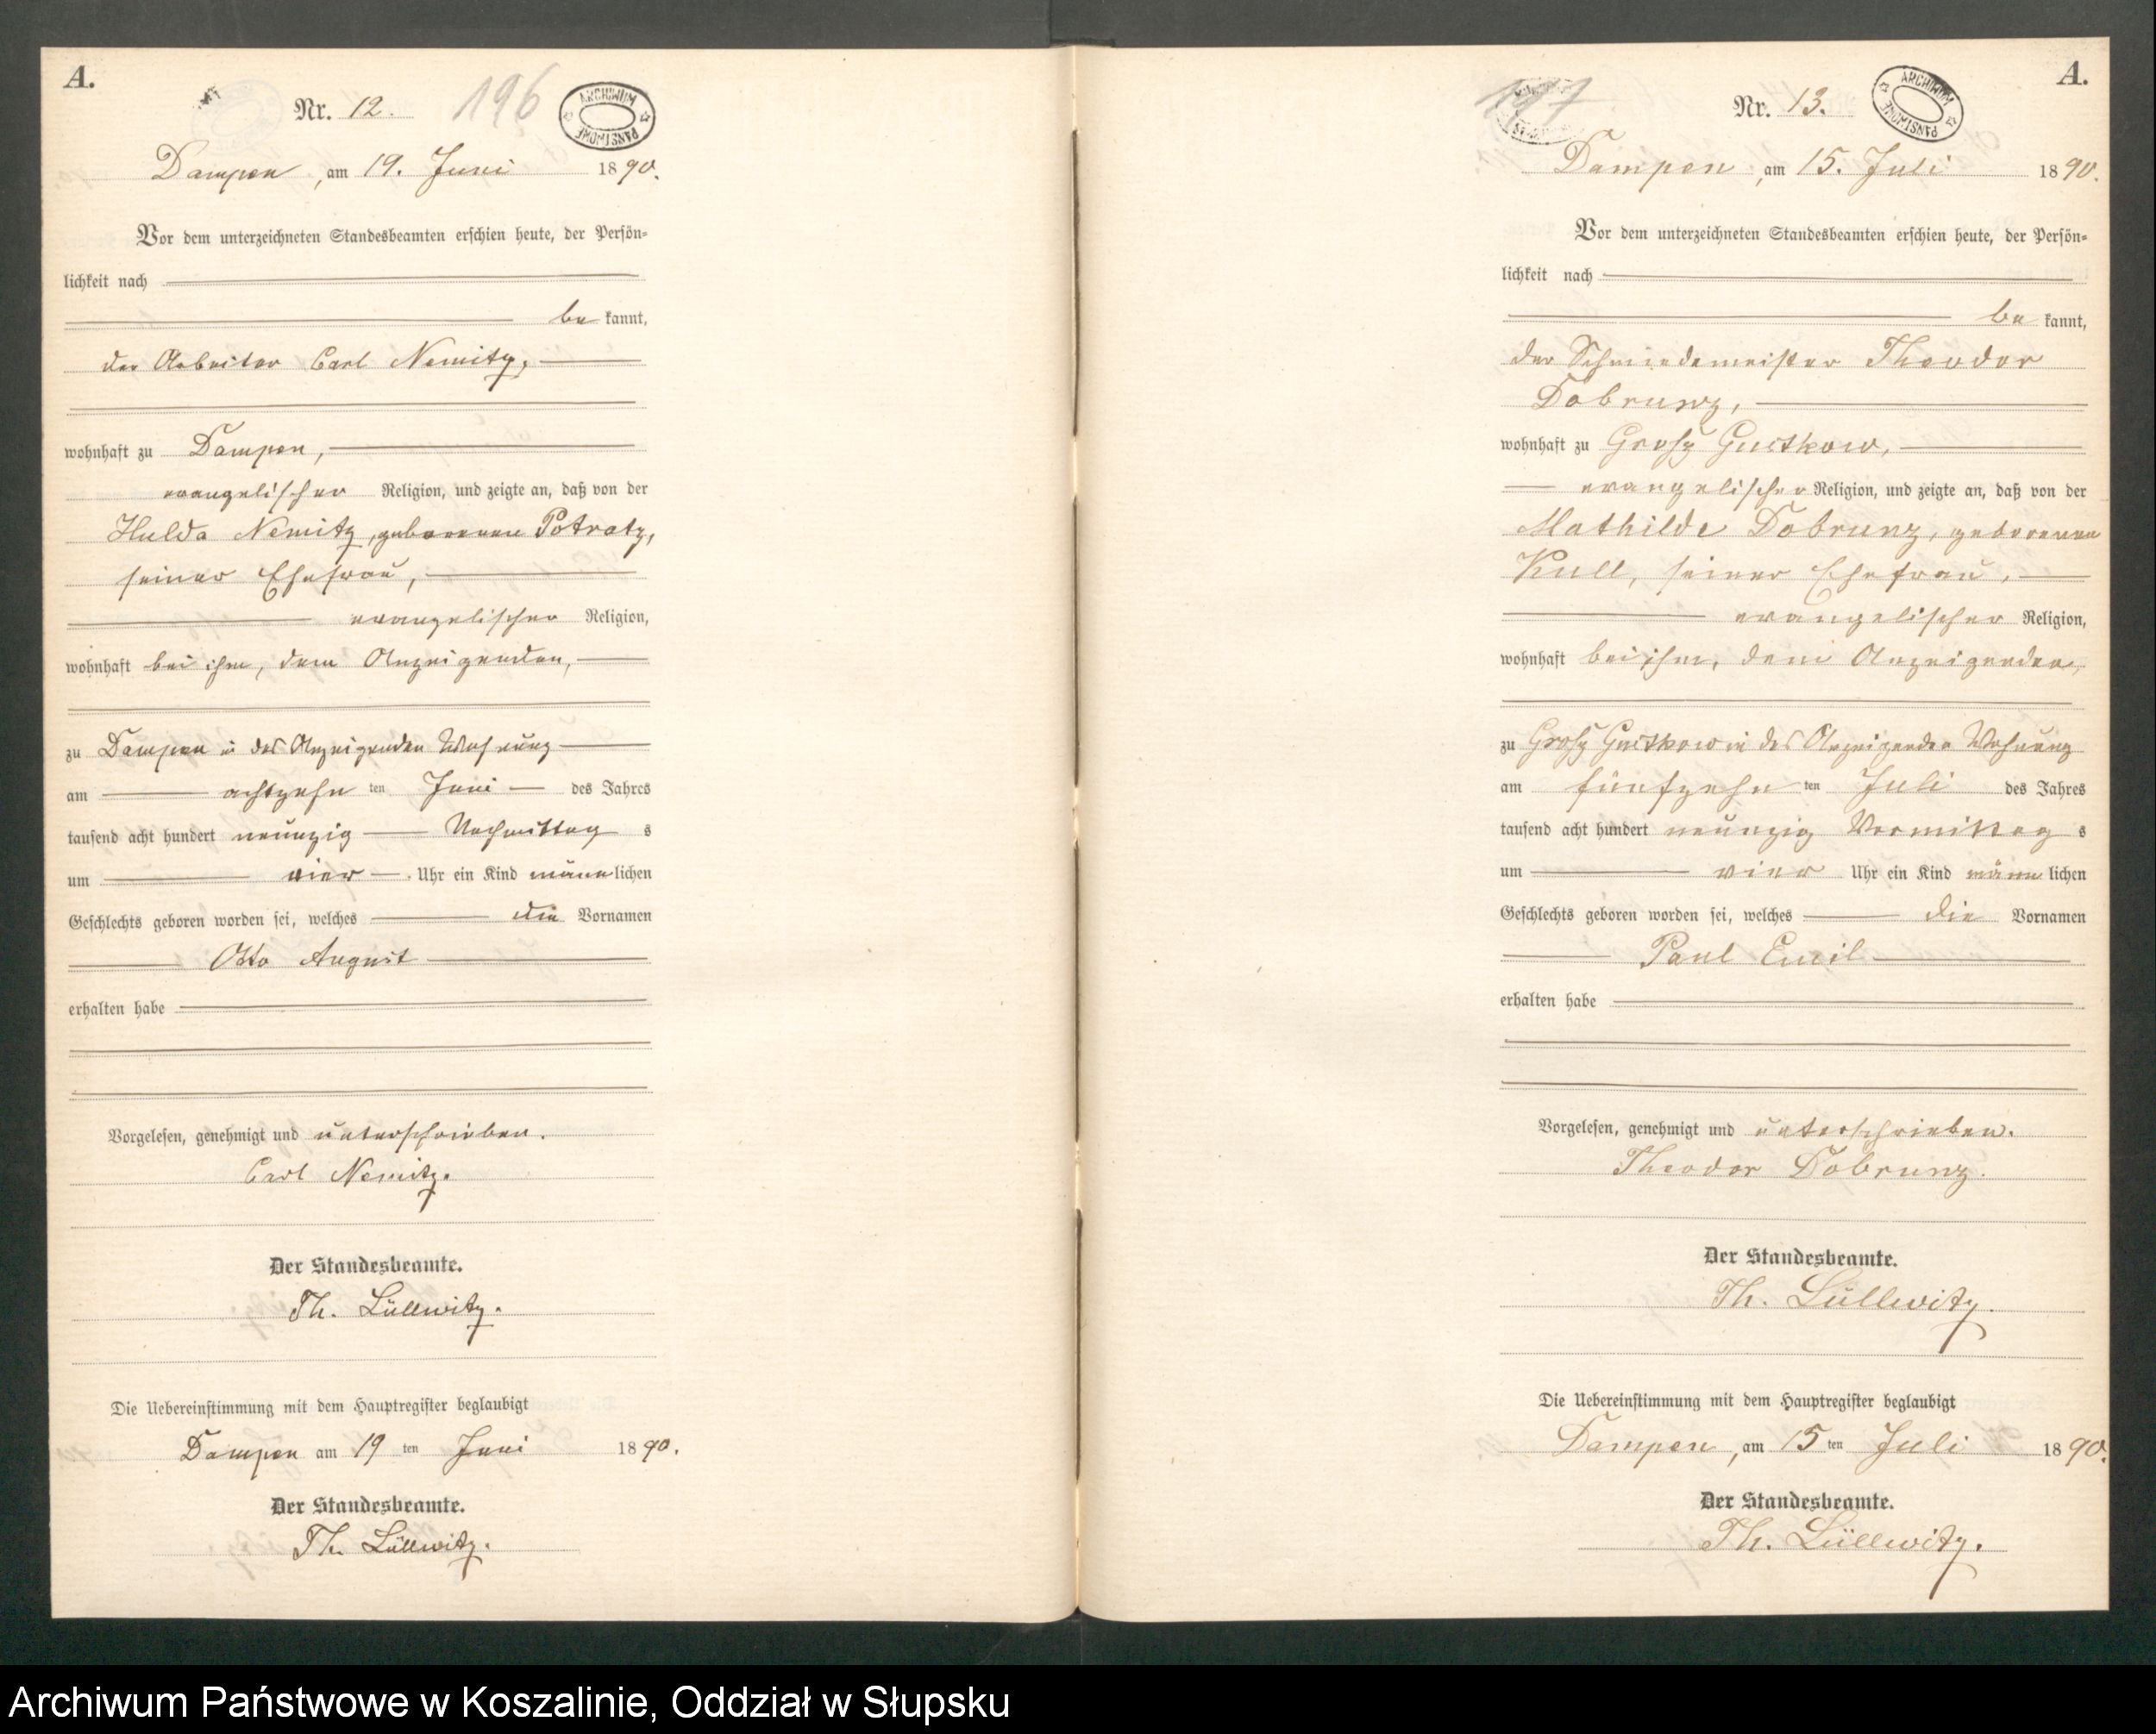 A.
Nr. 12.
196
ARCHIWUM PAŃSTWOWE
Dampen, am 19. Juni 1890.
Vor dem unterzeichneten Standesbeamten erschien heute, der Persön-
lichkeit nach
be kannt,
der Arbeiter Carl Nemitz,
wohnhaft zu Dampen,
evangelischer Religion, und zeigte an, daß von der
Hulda Nemitz, geborenen Potratz,
seiner Ehefrau,
evangelischer Religion,
wohnhaft bei ihm, dem Anzeigenden,
zu Dampen in des Anzeigenden Wohnung
am achtzehn ten Juni des Jahres
tausend acht hundert neunzig Nachmittag s
um vier Uhr ein Kind männ lichen
Geschlechts geboren worden sei, welches die Vornamen
Otto August
erhalten habe
Vorgelesen, genehmigt und unterschrieben.
Carl Nemitz.
Der Standesbeamte.
Th. Lüllwitz.
Die Uebereinstimmung mit dem Hauptregister beglaubigt
Dampen am 19 ten Juni 1890.
Der Standesbeamte.
Th. Lüllwitz.
A.
Nr. 13.
197
ARCHIWUM PAŃSTWOWE
Dampen, am 15. Juli 1890.
Vor dem unterzeichneten Standesbeamten erschien heute, der Persön-
lichkeit nach
be kannt,
der Schmiedemeister Theodor
Dobrunz,
wohnhaft zu Grosz Gustkow,
evangelischer Religion, und zeigte an, daß von der
Mathilde Dobrunz, geborenen
Kull, seiner Ehefrau,
evangelischer Religion,
wohnhaft bei ihm, dem Anzeigenden,
zu Grosz Gustkow in des Anzeigenden Wohnung
am fünfzehn ten Juli des Jahres
tausend acht hundert neunzig Vormittag s
um vier Uhr ein Kind männ lichen
Geschlechts geboren worden sei, welches die Vornamen
Paul Emil
erhalten habe
Vorgelesen, genehmigt und unterschrieben.
Theodor Dobrunz.
Der Standesbeamte.
Th. Lüllwitz.
Die Uebereinstimmung mit dem Hauptregister beglaubigt
Dampen, am 15 ten Juli 1890.
Der Standesbeamte.
Th. Lüllwitz.
Archiwum Państwowe w Koszalinie, Oddział w Słupsku